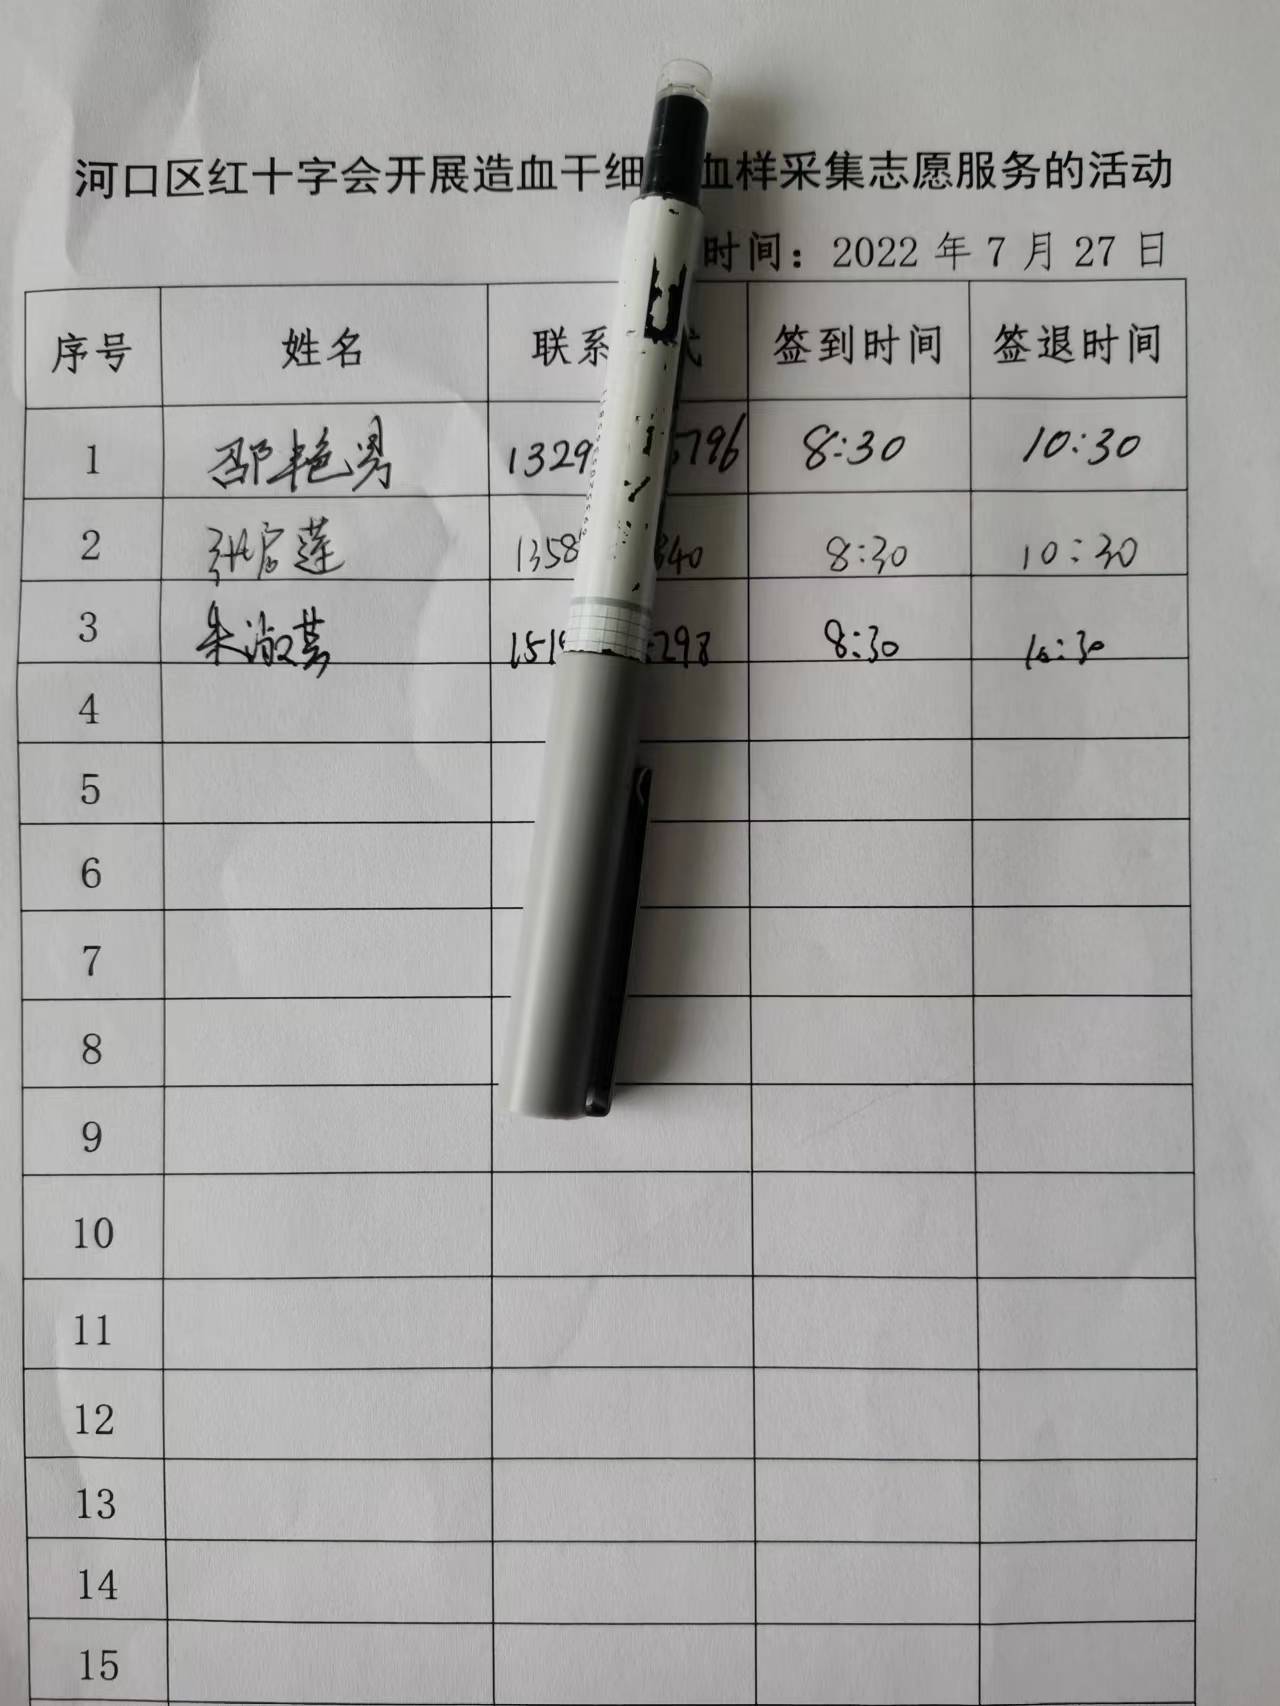 河口区红十字会开展造血干细 血样采集志愿服务的活动
时间：2022 年 7 月 27 日
序号 姓名 联系 式 签到时间 签退时间
1 邵艳男 1329 5796 8:30 10:30
2 张启莲 1358 340 8:30 10:30
3 朱淑芸 151 298 8:30 10:30
4
5
6
7
8
9
10
11
12
13
14
15